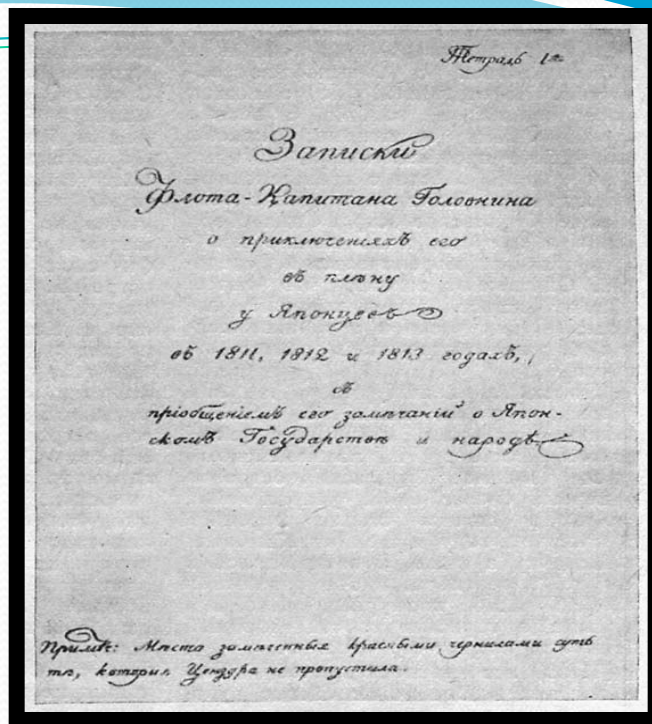 Тетрадь 1ая
Записки
Флота-Капитана Головнина
о приключеніяхъ его
въ плѣну
у Японцевъ
въ 1811, 1812 и 1813 годахъ,
съ
пріобщеніемъ его замѣчаній о Япон-
скомъ Государствѣ и народѣ
Примѣч: Мѣста замѣченныя красными чернилами суть
тѣ, которыя Цензура не пропустила.